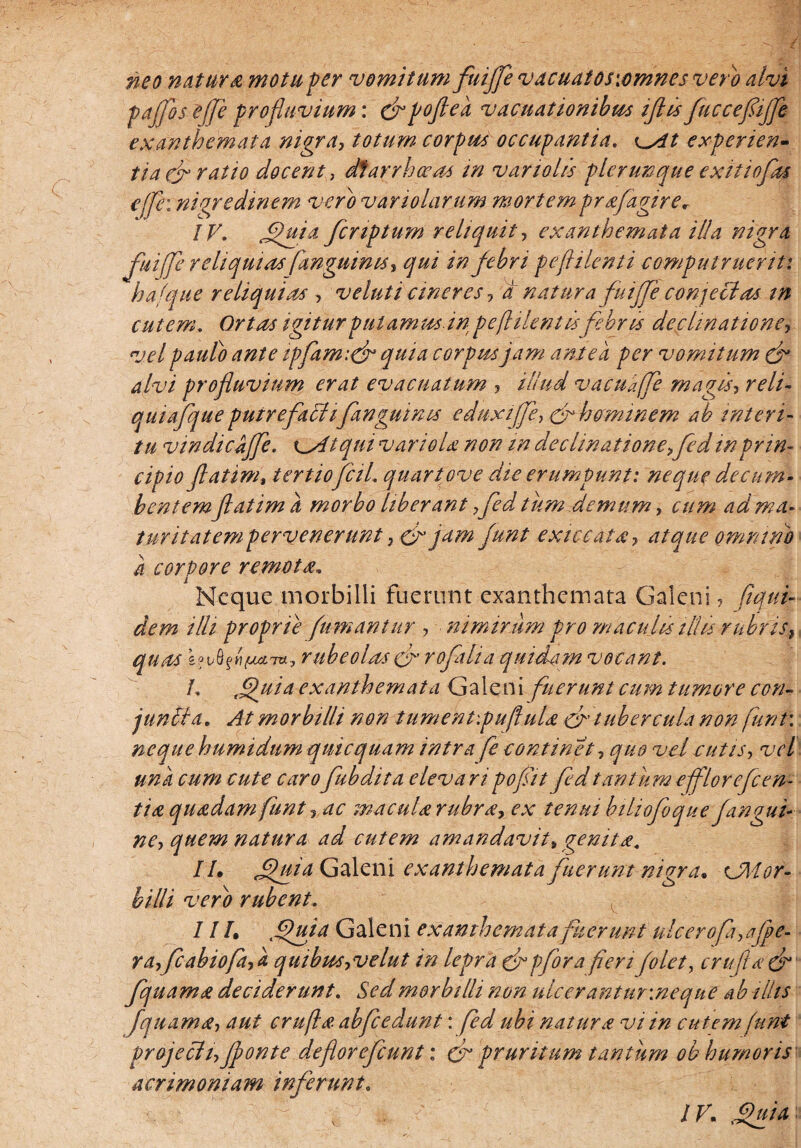 neo naturæ motu per vomitum fuisse vacuatos:omnes vero alvi
passos esse profluvium: & postea vacuationibus istis successisse
exanthemata nigra, totum corpus occupantia. At experien-
tia & ratio docent, diarrhœas in variolis plerunque exitiosas
esse: nigredinem vero variolarum mortem præsagire.
IV. Quia scriptum reliquit, exanthemata illa nigra
fuisse reliquias sanguinis, qui in febri pestilenti computruerit:
hasque reliquias, veluti cineres, à natura fuisse conjectas in
cutem. Ortas igitur putamus in pestilentis febris declinatione,
vel paulò ante ipsam:& quia corpus jam anteà per vomitum &
alvi profluvium erat evacuatum, illud vacuâsse magis, reli-
quiasque putrefacti sanguinis eduxisse, & hominem ab interi-
tu vindicâsse. Atqui variolæ non in declinatione, sed in prin-
cipio statim, tertio scil. quartove die erumpunt: neque decum-
bentem statim à morbo liberant, sed tùm demum, cum ad ma-
turitatem pervenerunt, & jam sunt exiccatæ, atque omninò
à corpore remotæ.
Neque morbilli fuerunt exanthemata Galeni, siqui-
dem illi propriè sumantur, nimirùm pro maculis illis rubris,
quas ἐρυθήματα, rubeolas & rosalia quidam vocant.
I. Quia exanthemata Galeni fuerunt cum tumore con-
juncta. At morbilli non tument:pustulæ & tubercula non sunt:
neque humidum quicquam intra se continet, quo vel cutis, vel
unà cum cute caro subdita elevari possit sed tantùm efflorescen-
tiæ quædam sunt, ac maculæ rubræ, ex tenui biliosoque sangui-
ne, quem natura ad cutem amandavit, genitæ.
II. Quia Galeni exanthemata fuerunt nigra. Mor-
billi verò rubent.
III. Quia Galeni exanthemata fuerunt ulcerosa, aspe-
ra, scabiosa, à quibus, velut in leprâ & psora fieri solet, crustæ &
squamæ deciderunt. Sed morbilli non ulcerantur:neque ab illis
squamæ, aut crustæ abscedunt: sed ubi naturæ vi in cutem sunt
projecti, sponte deflorescunt: & pruritum tantùm ob humoris
acrimoniam inferunt.
IV. Quia